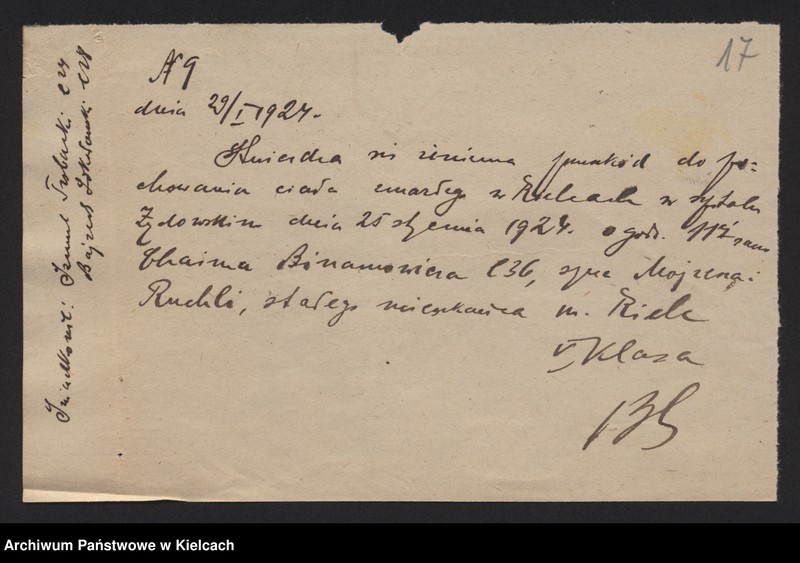 N 9
17
dnia 29/I 1924.
Stwierdza się iż niema przeszkód do po=
chowania ciała zmarłego w Kielcach w szpitalu
Żydowskim dnia 25 stycznia 1924. o godz. 11½ rano
Chaima Binamowicza l 36, syna Mojżesza i
Ruchli, stałego mieszkańca m. Kielc
V Klasa
Świadkowie: Szmul l 24
Bajnus l 28
Archiwum Państwowe w Kielcach